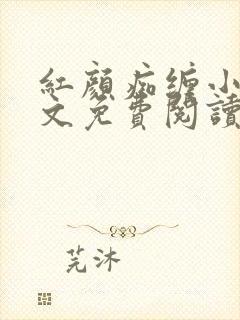 紅顏痴缠小
文免費閱讀
芫沐